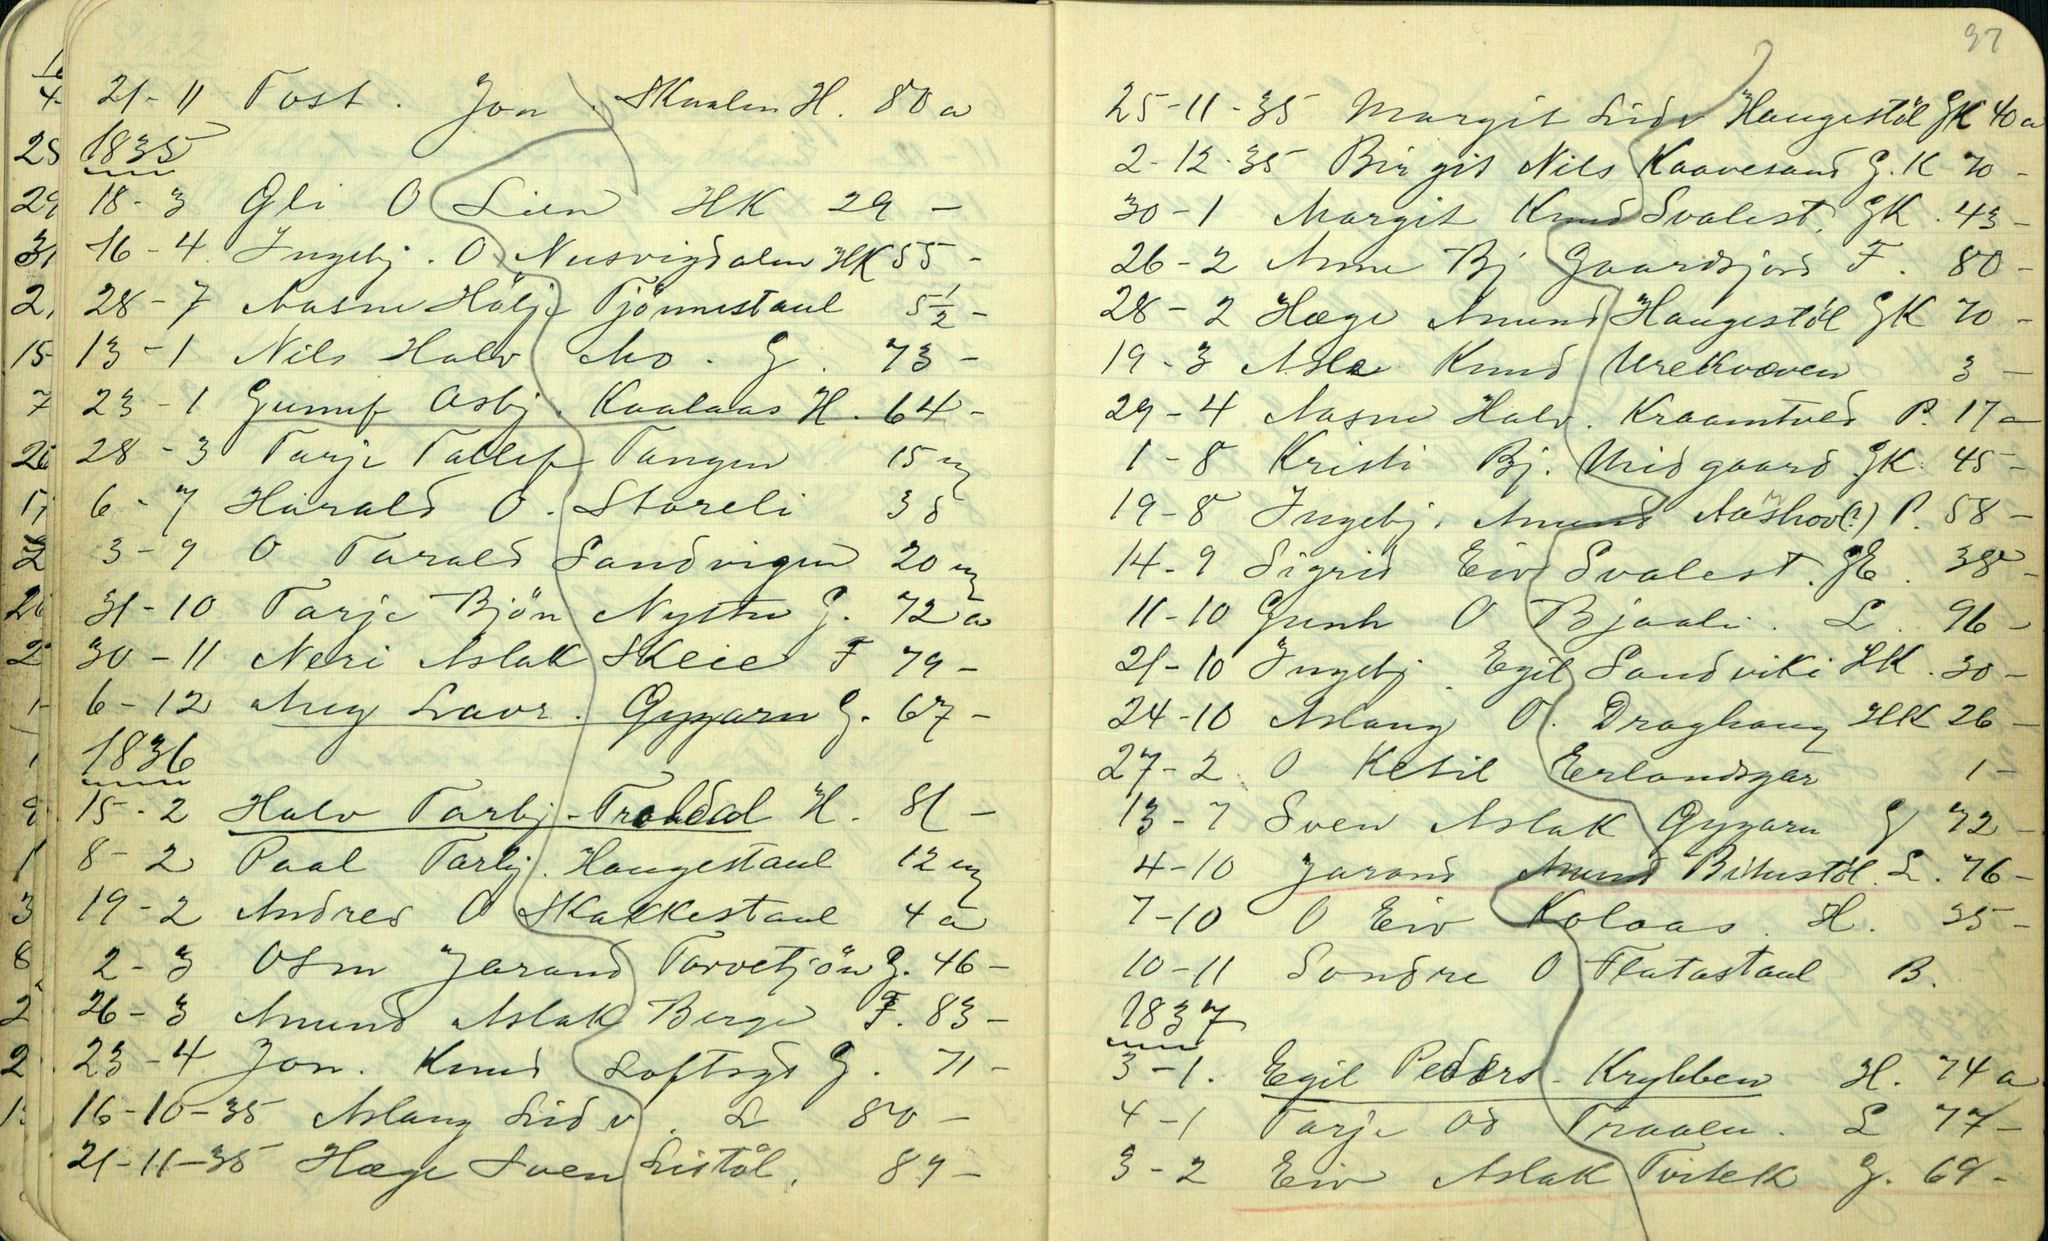 21-11 Tost. Jon. Skaalen H. 80 a
1835
18-3 Gli O Lien HK 29 -
16-4. Ingebj. O Nusvigdalen HK 55 -
28-7 Aasne Hölje Tjönnestaul 5½ -
13-1 Nils Halv Mo. G. 73 -
23-1 Gunuf Asbj. Kaalaas H. 64 -
28-3 Tarje Tallef Tangen 15 m
6-7 Harald O. Storeli 38
3-9 O Tarald Sandvigen 20 m
31-10 Tarje Bjön Nystu G. 72 a
30-11 Neri Aslak Skeie F 79 -
6-12 Aug Lavr. Gyyarn G. 67 -
1836
15-2 Halv Tarbj. Troldal H. 81 -
8-2 Paal Tarbj. Haugestaul 12 m
19-2 Andres O Skakkestaul 4 a
2-3 Osm Jarand Torvetjön G. 46 -
26-3 Amund Aslak Berge F. 83 -
23-4 Jon. Knud Loftsgd G. 71 -
16-10-35 Aslaug Lidv. L 80 -
21-11-35 Hæge Sven Listål. 89 -
37
25-11-35 Margit Lidv Haugestöl GK 40 a
2-12-35 Birgit Nils Kaavesand G.K 70 -
30-1 Margit Knud Svalest. GK. 43 -
26-2 Anne Bj Gaardsjord F. 80 -
28-2 Hæge Amund Haugestöl GK 70 -
19-3 Asla Knud Urekvæven 3 -
29-4 Aasne Halv. Kraamtved P. 17 a
1-8 Kristi Bj. Midgaard GK. 45 -
19-8 Ingebj. Amund Aashov(?) P. 58 -
14-9 Sigrid Eiv Svalest. GE. 38 -
11-10 Gunh O Bjaali. L. 96 -
21-10 Ingebj. Egil Sandviki HK. 30 -
24-10 Aslaug O. Draghaug HK 26 -
27-2. O Ketil Erlandsgar 1 -
13-7 Sven Aslak Gyyarn G 72 -
4-10 Jarand Amund Bitustöl. L. 76 -
7-10 O Eiv Kolaas. H. 35 -
10-11 Sondre O Flatastaul B.
1837
3-1. Egil Peders. Krybben H. 74 a
4-1 Tarje Od Traaen. L 77 -
3-2 Eiv Aslak Tvitekk G. 69 -